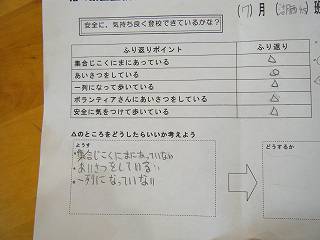 (17)月 班
安全に、気持ち良く登校できているかな？
ふり返りポイント ふり返り
集合じこくにまにあっている △
あいさつをしている ○
一列になって歩いている △
ボランティアさんにあいさつをしている △
安全に気をつけて歩いている △
△のところをどうしたらいいか考えよう
ようす
・集合じこくにまにあっていない
・あいさつをしている
・一列になっていない
どうするか